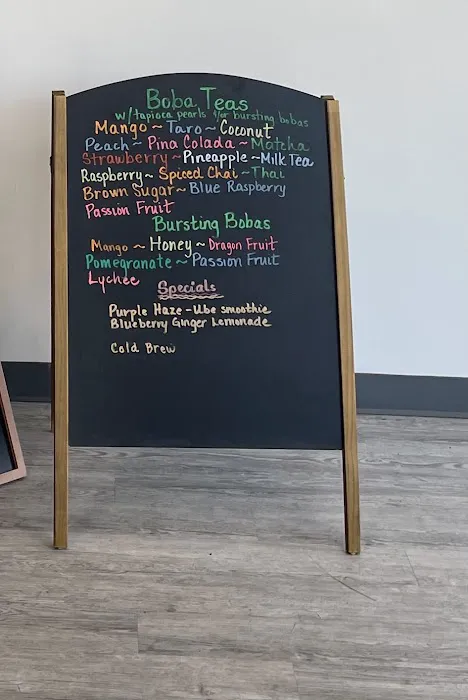 Boba Teas
w/tapioca pearls &/or bursting bobas
Mango ~ Taro ~ Coconut
Peach ~ Pina Colada ~ Matcha
Strawberry ~ Pineapple ~ Milk Tea
Raspberry ~ Spiced Chai ~ Thai
Brown Sugar ~ Blue Raspberry
Passion Fruit
Bursting Bobas
Mango ~ Honey ~ Dragon Fruit
Pomegranate ~ Passion Fruit
Lychee
Specials
Purple Haze - Ube smoothie
Blueberry Ginger Lemonade
Cold Brew